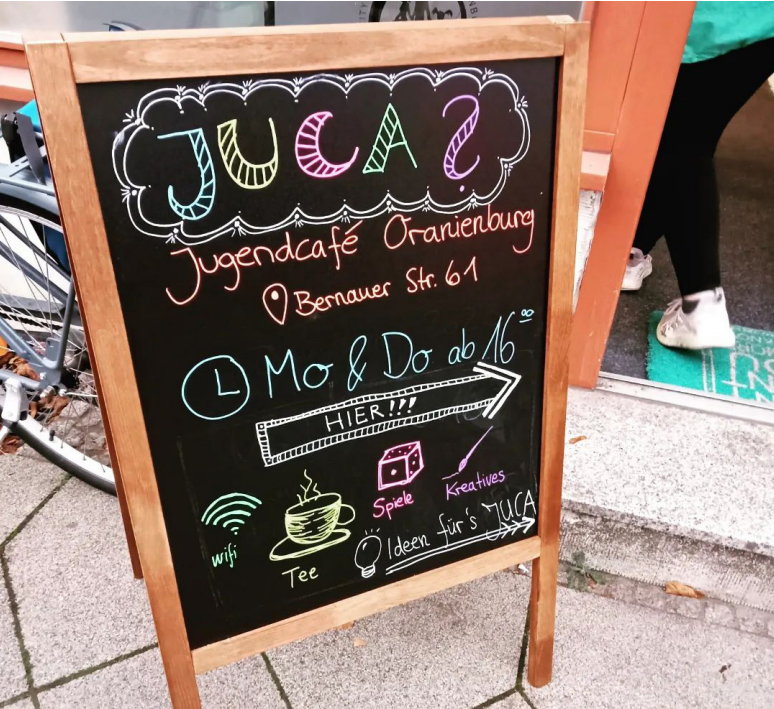 JUCA?
Jugendcafé Oranienburg
Bernauer Str. 61
Mo & Do ab 16⁰⁰
HIER!!!
wifi
Tee
Spiele
Kreatives
Ideen für's JUCA